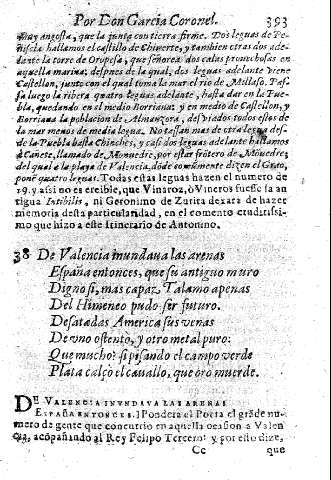 Por Don Garcia Coronel. 393
muy angosta, que la junta con tierra firme. Dos leguas de Pe-
ñiscla hallamos el castillo de Chiverte, y tambien otras dos ade-
lante la torre de Oropesa, que señorea dos calas provechosas en
aquella marina; despues de la qual, dos leguas adelante viene
Castellon, junto con el qual toma la mar el rio de Millaso. Pas-
sa luego la ribera quatro leguas adelante, hasta dar en la Pue-
bla, quedando en el medio Borriana; y en medio de Castellon, y
Borriana la poblacion de Almanzora, desviados todos estos de
la mar menos de media legua. No tassan mas de otra legua des-
de la Puebla hasta Chinches, y casi dos leguas adelante hallamos
à Canese, llamado de Monuedre, por estar frontero de Monuedre;
del qual a la playa de Valencia, dōde comunmente dizen el Grao,
ponē quatro leguas. Todas estas leguas hazen el numero de
19. y assi no es creible, que Vinaroz, ò Vineros fuesse la an
tigua Intibilis, ni Geronimo de Zurita dexara de hazer
memoria desta particularidad, en el comento eruditissi-
mo que hizo a este Itinerario de Antonino.
38 De Valencia inundaua las arenas
España entonces, que su antiguo muro
Digno si, mas capaz Talamo apenas
Del Himeneo pudo ser futuro.
Desatadas America sus venas
De vno ostento, y otro metal puro:
Que mucho? si pisando el campo verde
Plata calçò el cauallo, que oro muerde.
DE VALENCIA INVNDAVA LAS ARENAS
ESPAÑA ENTONCES.] Pondera el Poeta el grāde nu-
mero de gente que concurriò en aquella ocasion a Valen
cia, acōpañando al Rey Felipo Tercero: y por esto dize,
Cc que